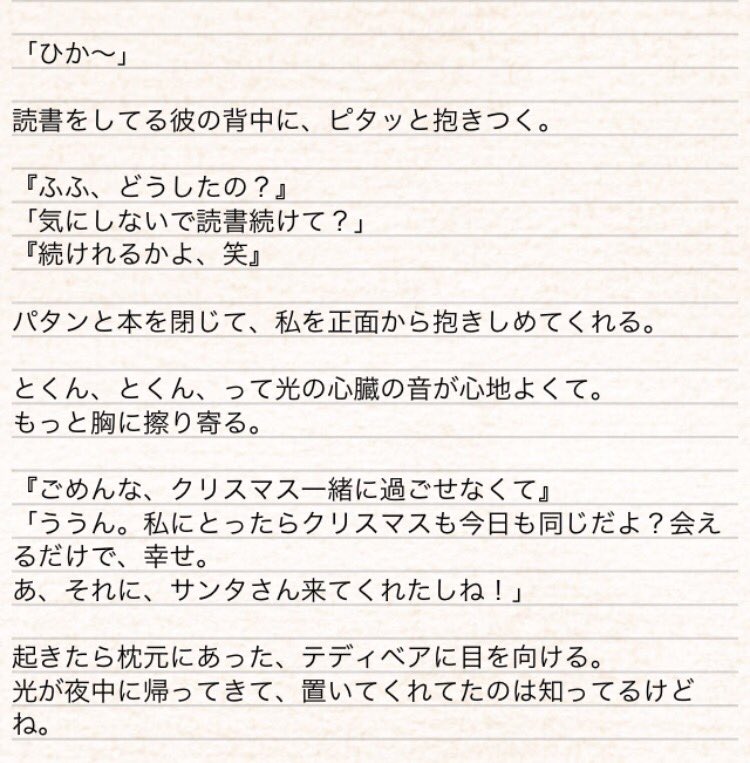 「ひか〜」
読書をしてる彼の背中に、ピタッと抱きつく。
『ふふ、どうしたの？』
「気にしないで読書続けて？」
『続けれるかよ、笑』
パタンと本を閉じて、私を正面から抱きしめてくれる。
とくん、とくん、って光の心臓の音が心地よくて。
もっと胸に擦り寄る。
『ごめんな、クリスマス一緒に過ごせなくて』
「ううん。私にとったらクリスマスも今日も同じだよ？会え
るだけで、幸せ。
あ、それに、サンタさん来てくれたしね！」
起きたら枕元にあった、テディベアに目を向ける。
光が夜中に帰ってきて、置いてくれてたのは知ってるけど
ね。